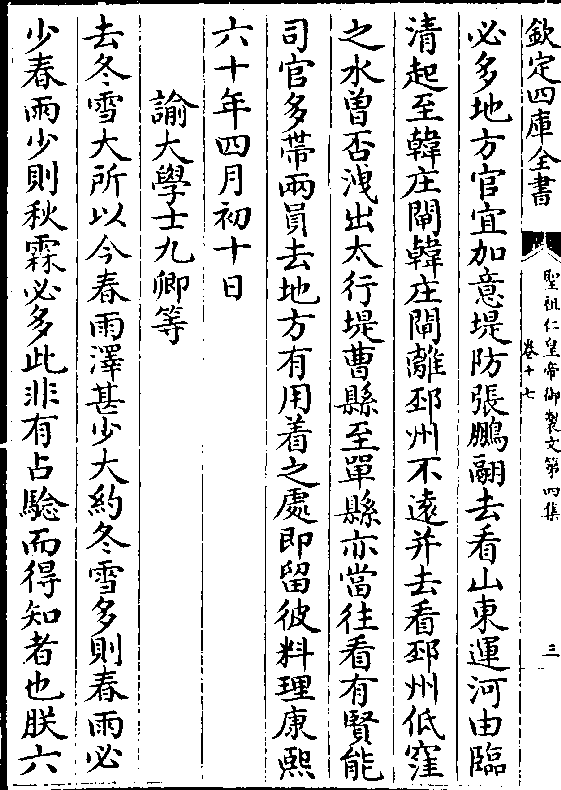 欽定四庫全書
聖祖仁皇帝御製文第四集
卷十七
三
必多地方官宜加意堤防張鵬翮去看山東運河由臨
清起至韓庄閘韓庄閘離邳州不遠并去看邳州低窪
之水曽否洩出太行堤曹縣至單縣亦當往看有賢能
司官多帶兩員去地方有用着之處即留彼料理康熙
六十年四月初十日
諭大學士九卿等
去冬雪大所以今春雨澤甚少大約冬雪多則春雨必
少春雨少則秋霖必多此非有占驗而得知者也朕六